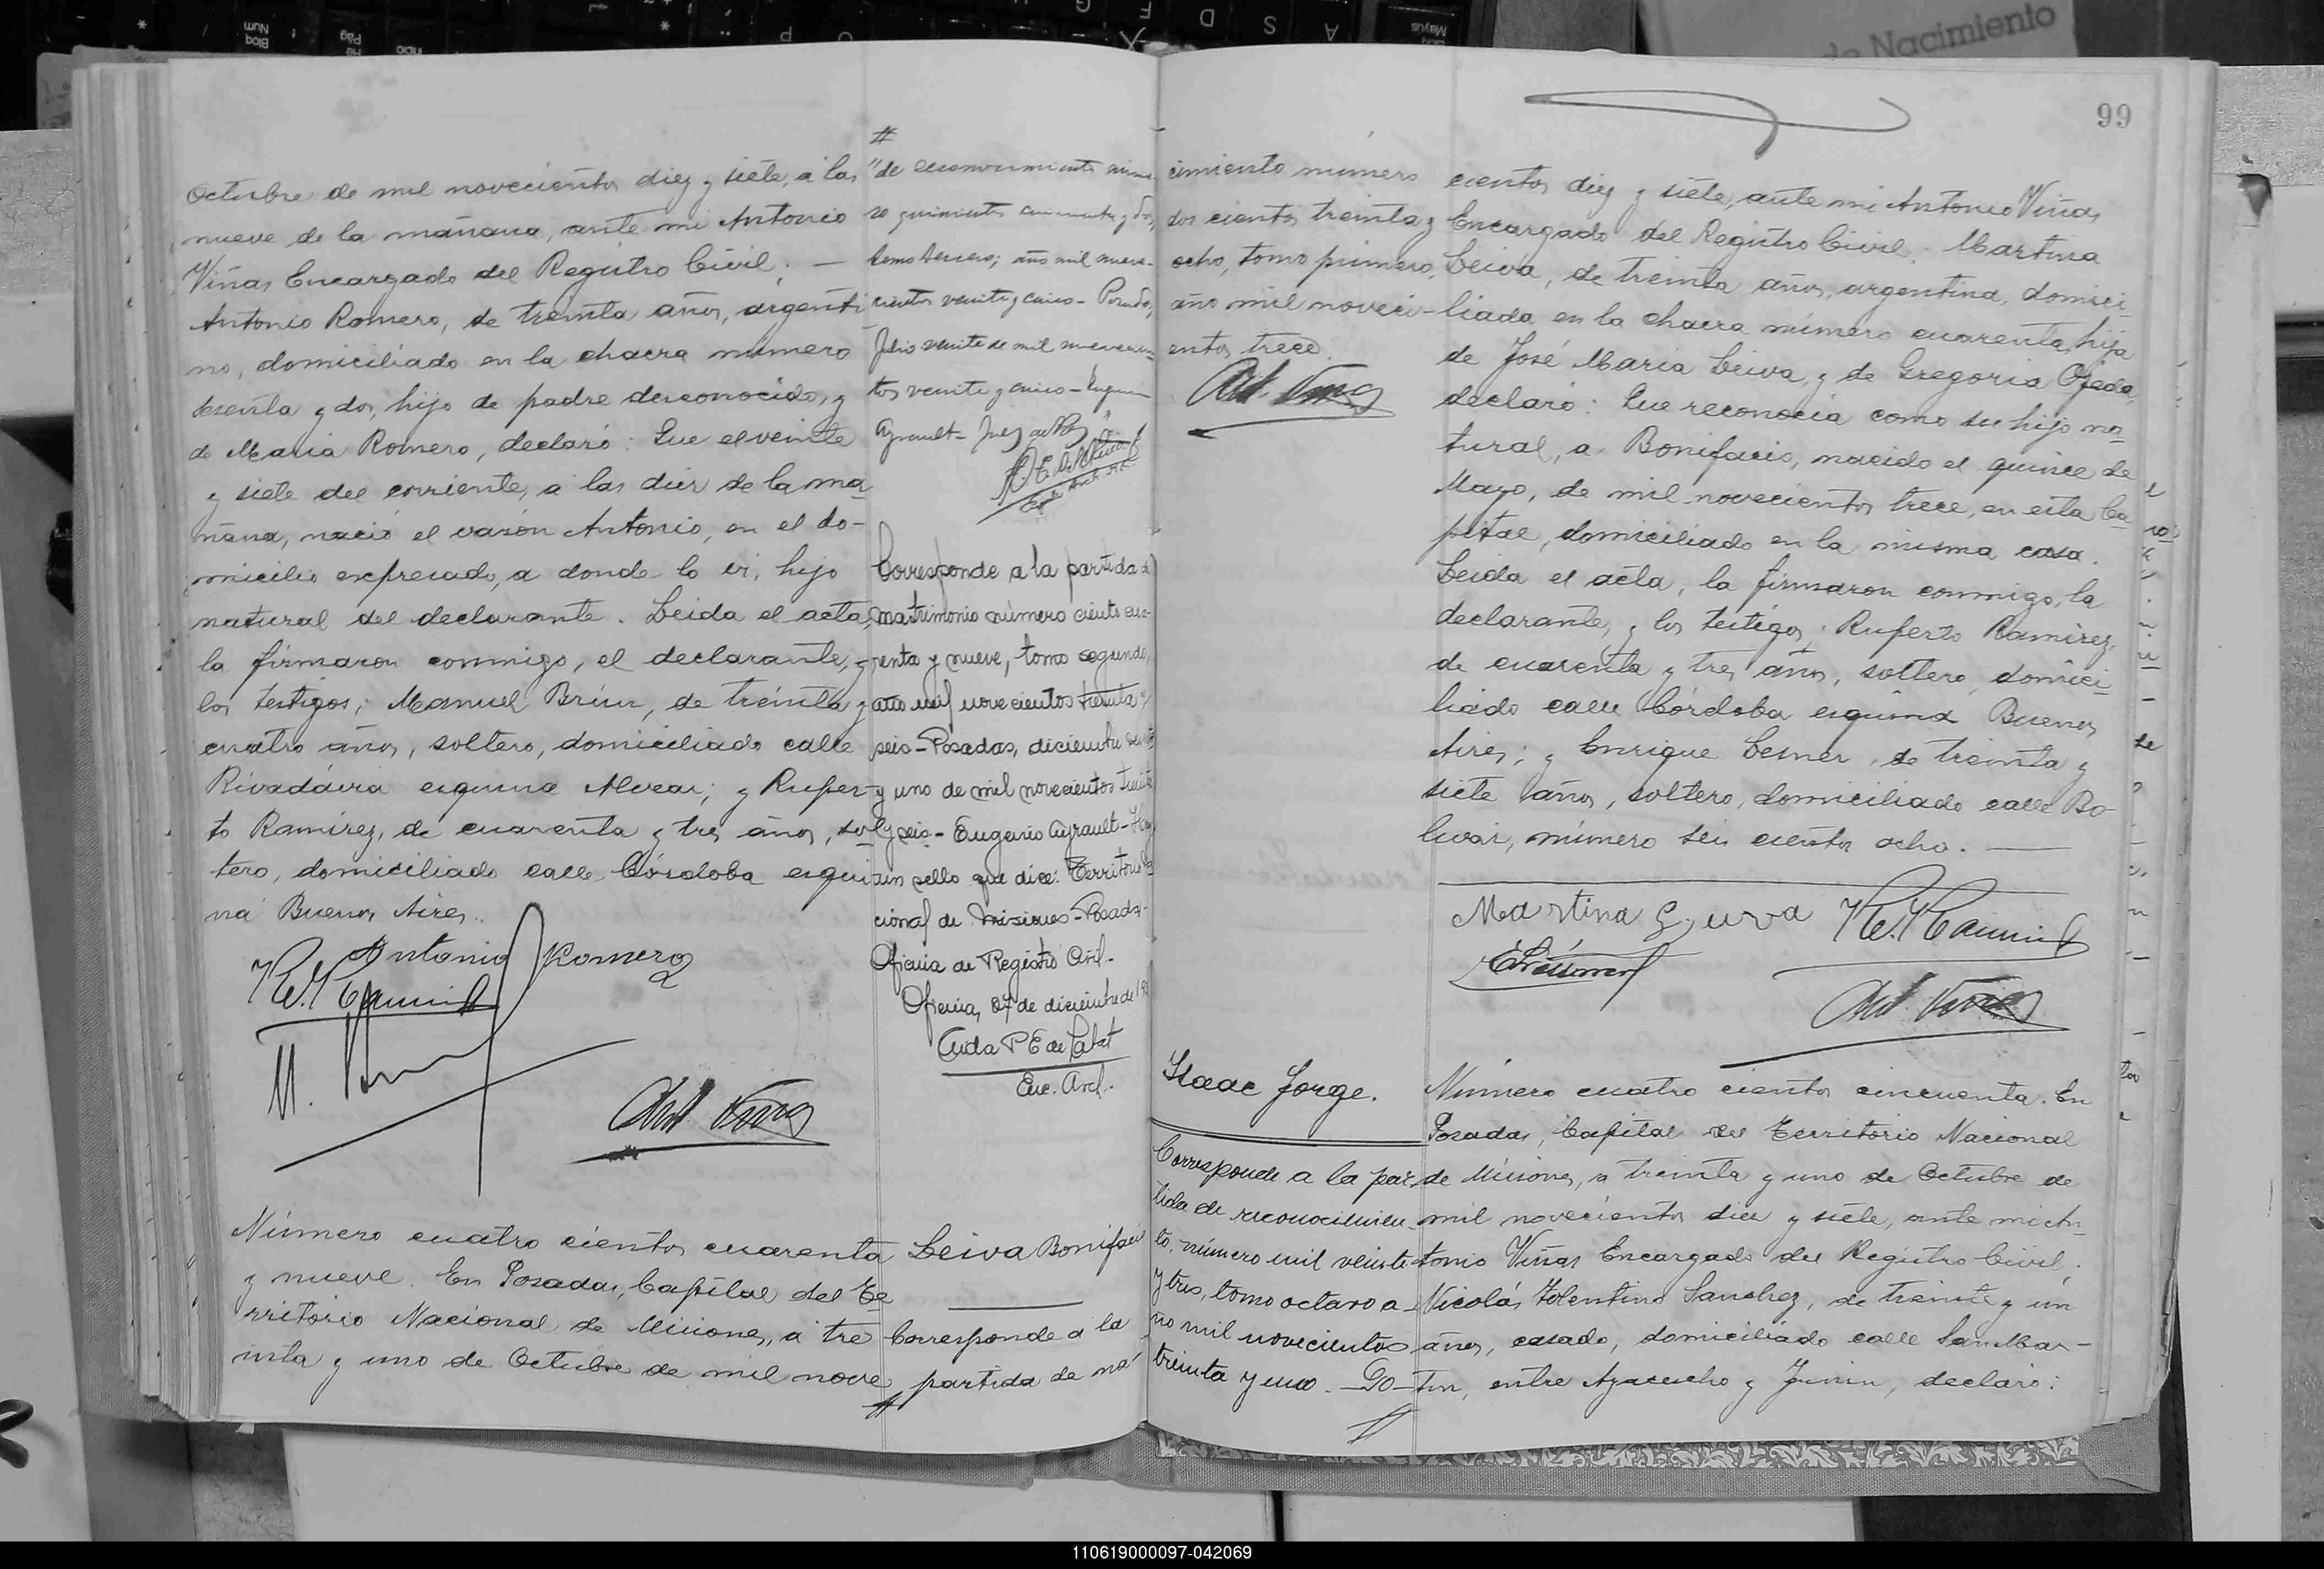 Octubre de mil novecientos diez y siete, a las
nueve de la mañana, ante mi Antonio
Viñas Encargado del Registro Civil. —
Antonio Romero, de treinta años, argenti
no, domiciliado en la chacra número
sesenta y dos, hijo de padre desconocido, y
de Maria Romero, declaró: Que el veinte
y siete del corriente, a las diez de la ma
ñana, nació el varón Antonio, en el do-
micilio expresado, a donde lo vi, hijo
natural del declarante. Leida el acta,
la firmaron conmigo, el declarante, y
los testigos; Manuel Brun, de treinta y
cuatro años, soltero, domiciliado calle
Rivadavia esquina Alvear; y Ruper-
to Ramirez, de cuarenta y tres años, sol
tero, domiciliado calle Córdoba esqui
na Buenos Aires.
Antonio Romero
Número cuatro cientos cuarenta
y nueve. En Posadas, Capital del Te
rritorio Nacional de Misiones, a tre
inta y uno de Octubre de mil nove
#
"de reconocimiento núme
ro quinientos cincuenta y dos,
tomo tercero; año mil nove-
cientos veinte y cinco - Posadas,
Julio veinte de mil novecien-
tos veinte y cinco - Eugenio
Ayrault - Juez de Paz"
Corresponde a la partida de
matrimonio número ciento cua-
renta y nueve, tomo segundo,
año mil novecientos treinta y
seis - Posadas, diciembre
y uno de mil novecientos treinta
y seis - Eugenio Ayrault - Hay
un sello que dice: Territorio Na
cional de Misiones - Posadas -
Oficina de Registro Civil -
Oficina, 27 de diciembre de 19
Aida P E de Labat
Enc. Arch.
Leiva Bonifacio
Corresponde a la
partida de na
cimiento número
dos cientos treinta y
ocho, tomo primero,
año mil noveci-
entos trece.
Ant. Viñas
99
cientos diez y siete, ante mi Antonio Viñas
Encargado del Registro Civil. Martina
Leiva, de treinta años, argentina, domici-
liada en la chacra número cuarenta, hija
de José Maria Leiva, y de Gregoria Ojeda,
declaró: Que reconocia como su hijo na
tural, a Bonifacio, nacido el quince de
Mayo, de mil novecientos trece, en esta Ca
pital, domiciliado en la misma casa.
Leida el acta, la firmaron conmigo, la
declarante, y los testigos; Ruperto Ramirez,
de cuarenta y tres años, soltero, domici
liado calle Córdoba esquina Buenos
Aires; y Enrique Lesner, de treinta y
siete años, soltero, domiciliado calle Bo-
livar, número seis cientos ocho. —
Martina Leyuva
Ant. Viñas
Isaac Jorge.
Corresponde a la par
tida de reconocimien
to, número mil veinte
y tres, tomo octavo a
ño mil novecientos
treinta y uno. — Po-
Número cuatro cientos cincuenta. En
Posadas, Capital del Territorio Nacional
de Misiones, a treinta y uno de Octubre de
mil novecientos diez y siete, ante mi An
tonio Viñas Encargado del Registro Civil;
Nicolás Tolentino Sanchez, de treinta y un
años, casado, domiciliado calle San Mar-
tin, entre Ayacucho y Junin, declaró:
de Nacimiento
110619000097-042069